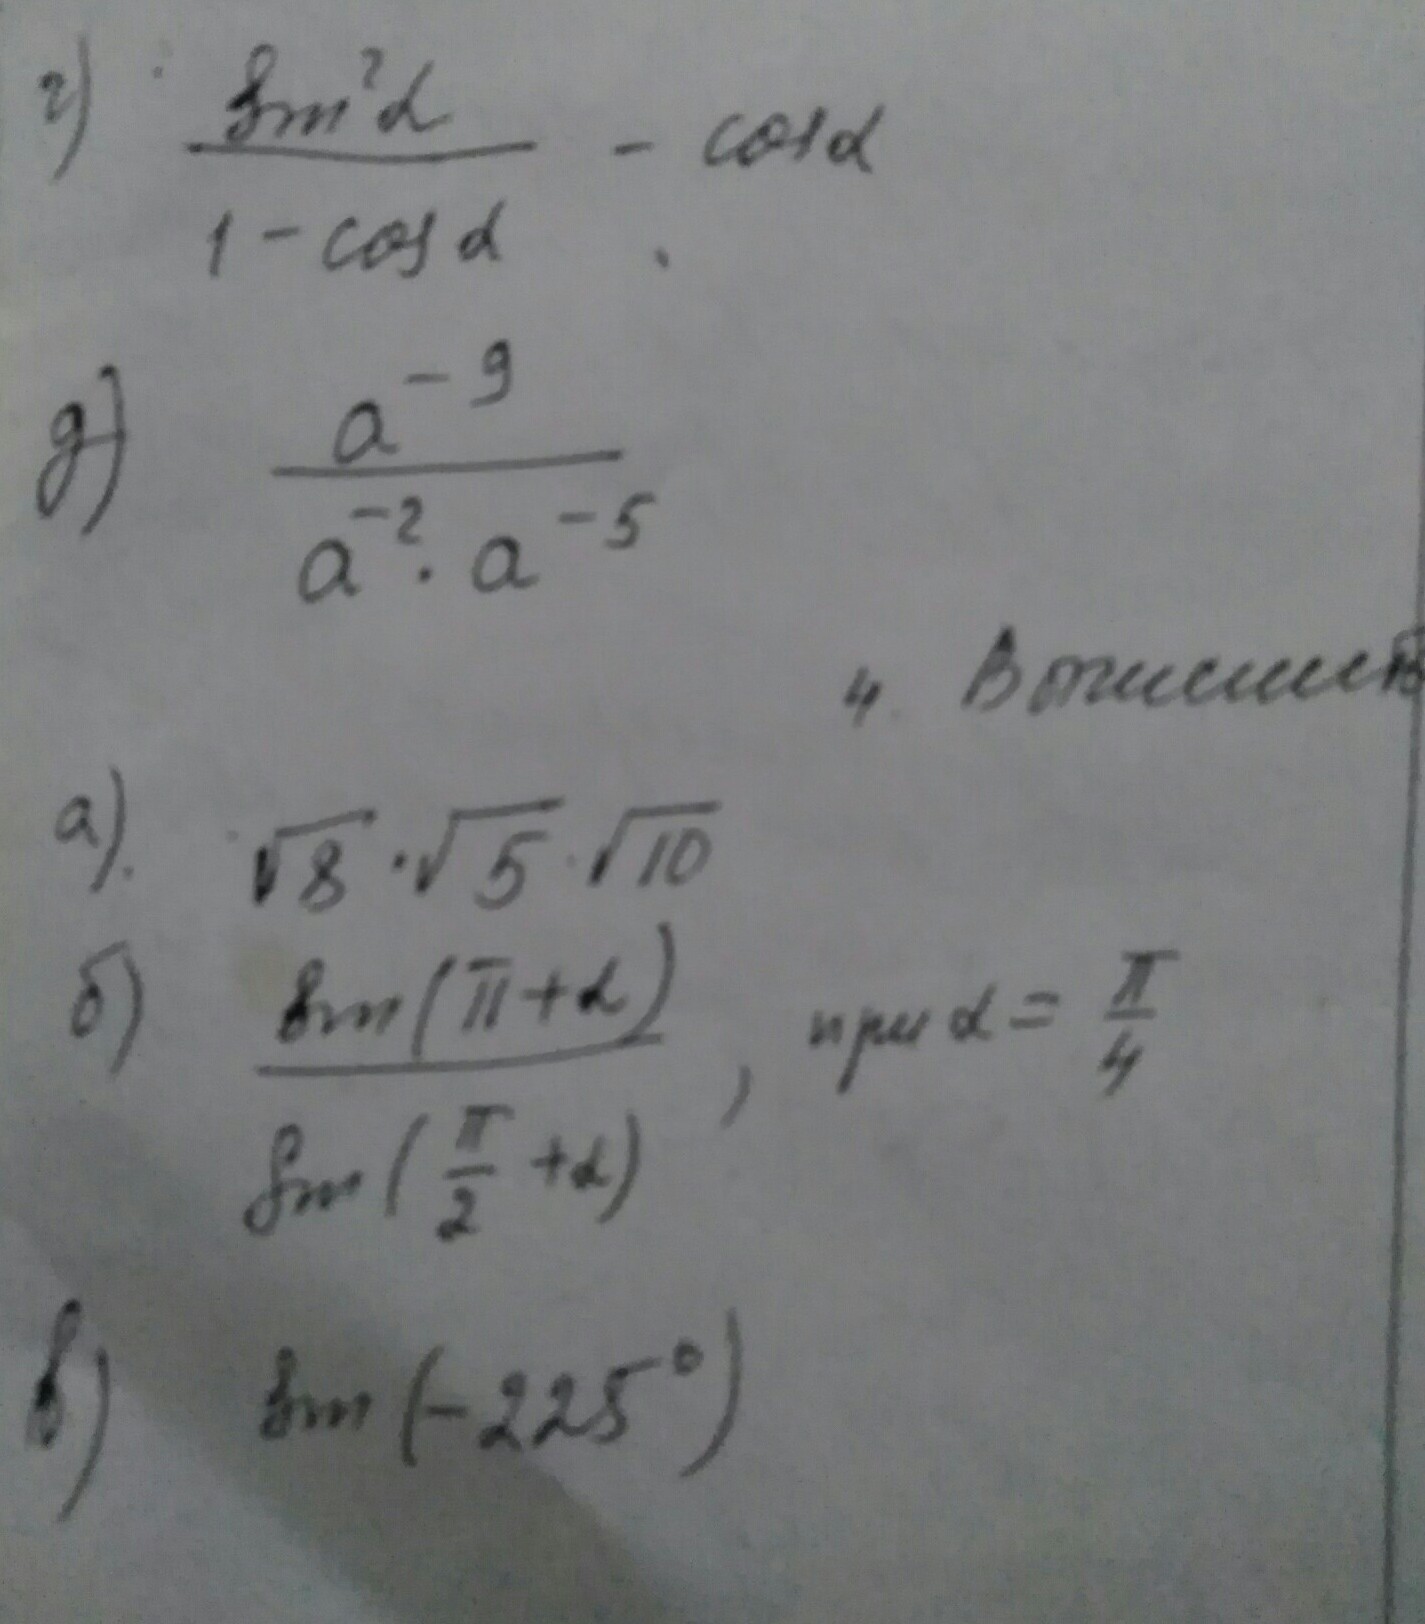 г) sin²α / (1 - cosα) - cosα
д) a⁻⁹ / (a⁻² · a⁻⁵)
4. Вычислить
а). √8 · √5 · √10
б) sin(π+α) / sin(π/2 +α), при α = π/4
в) sin(-225°)